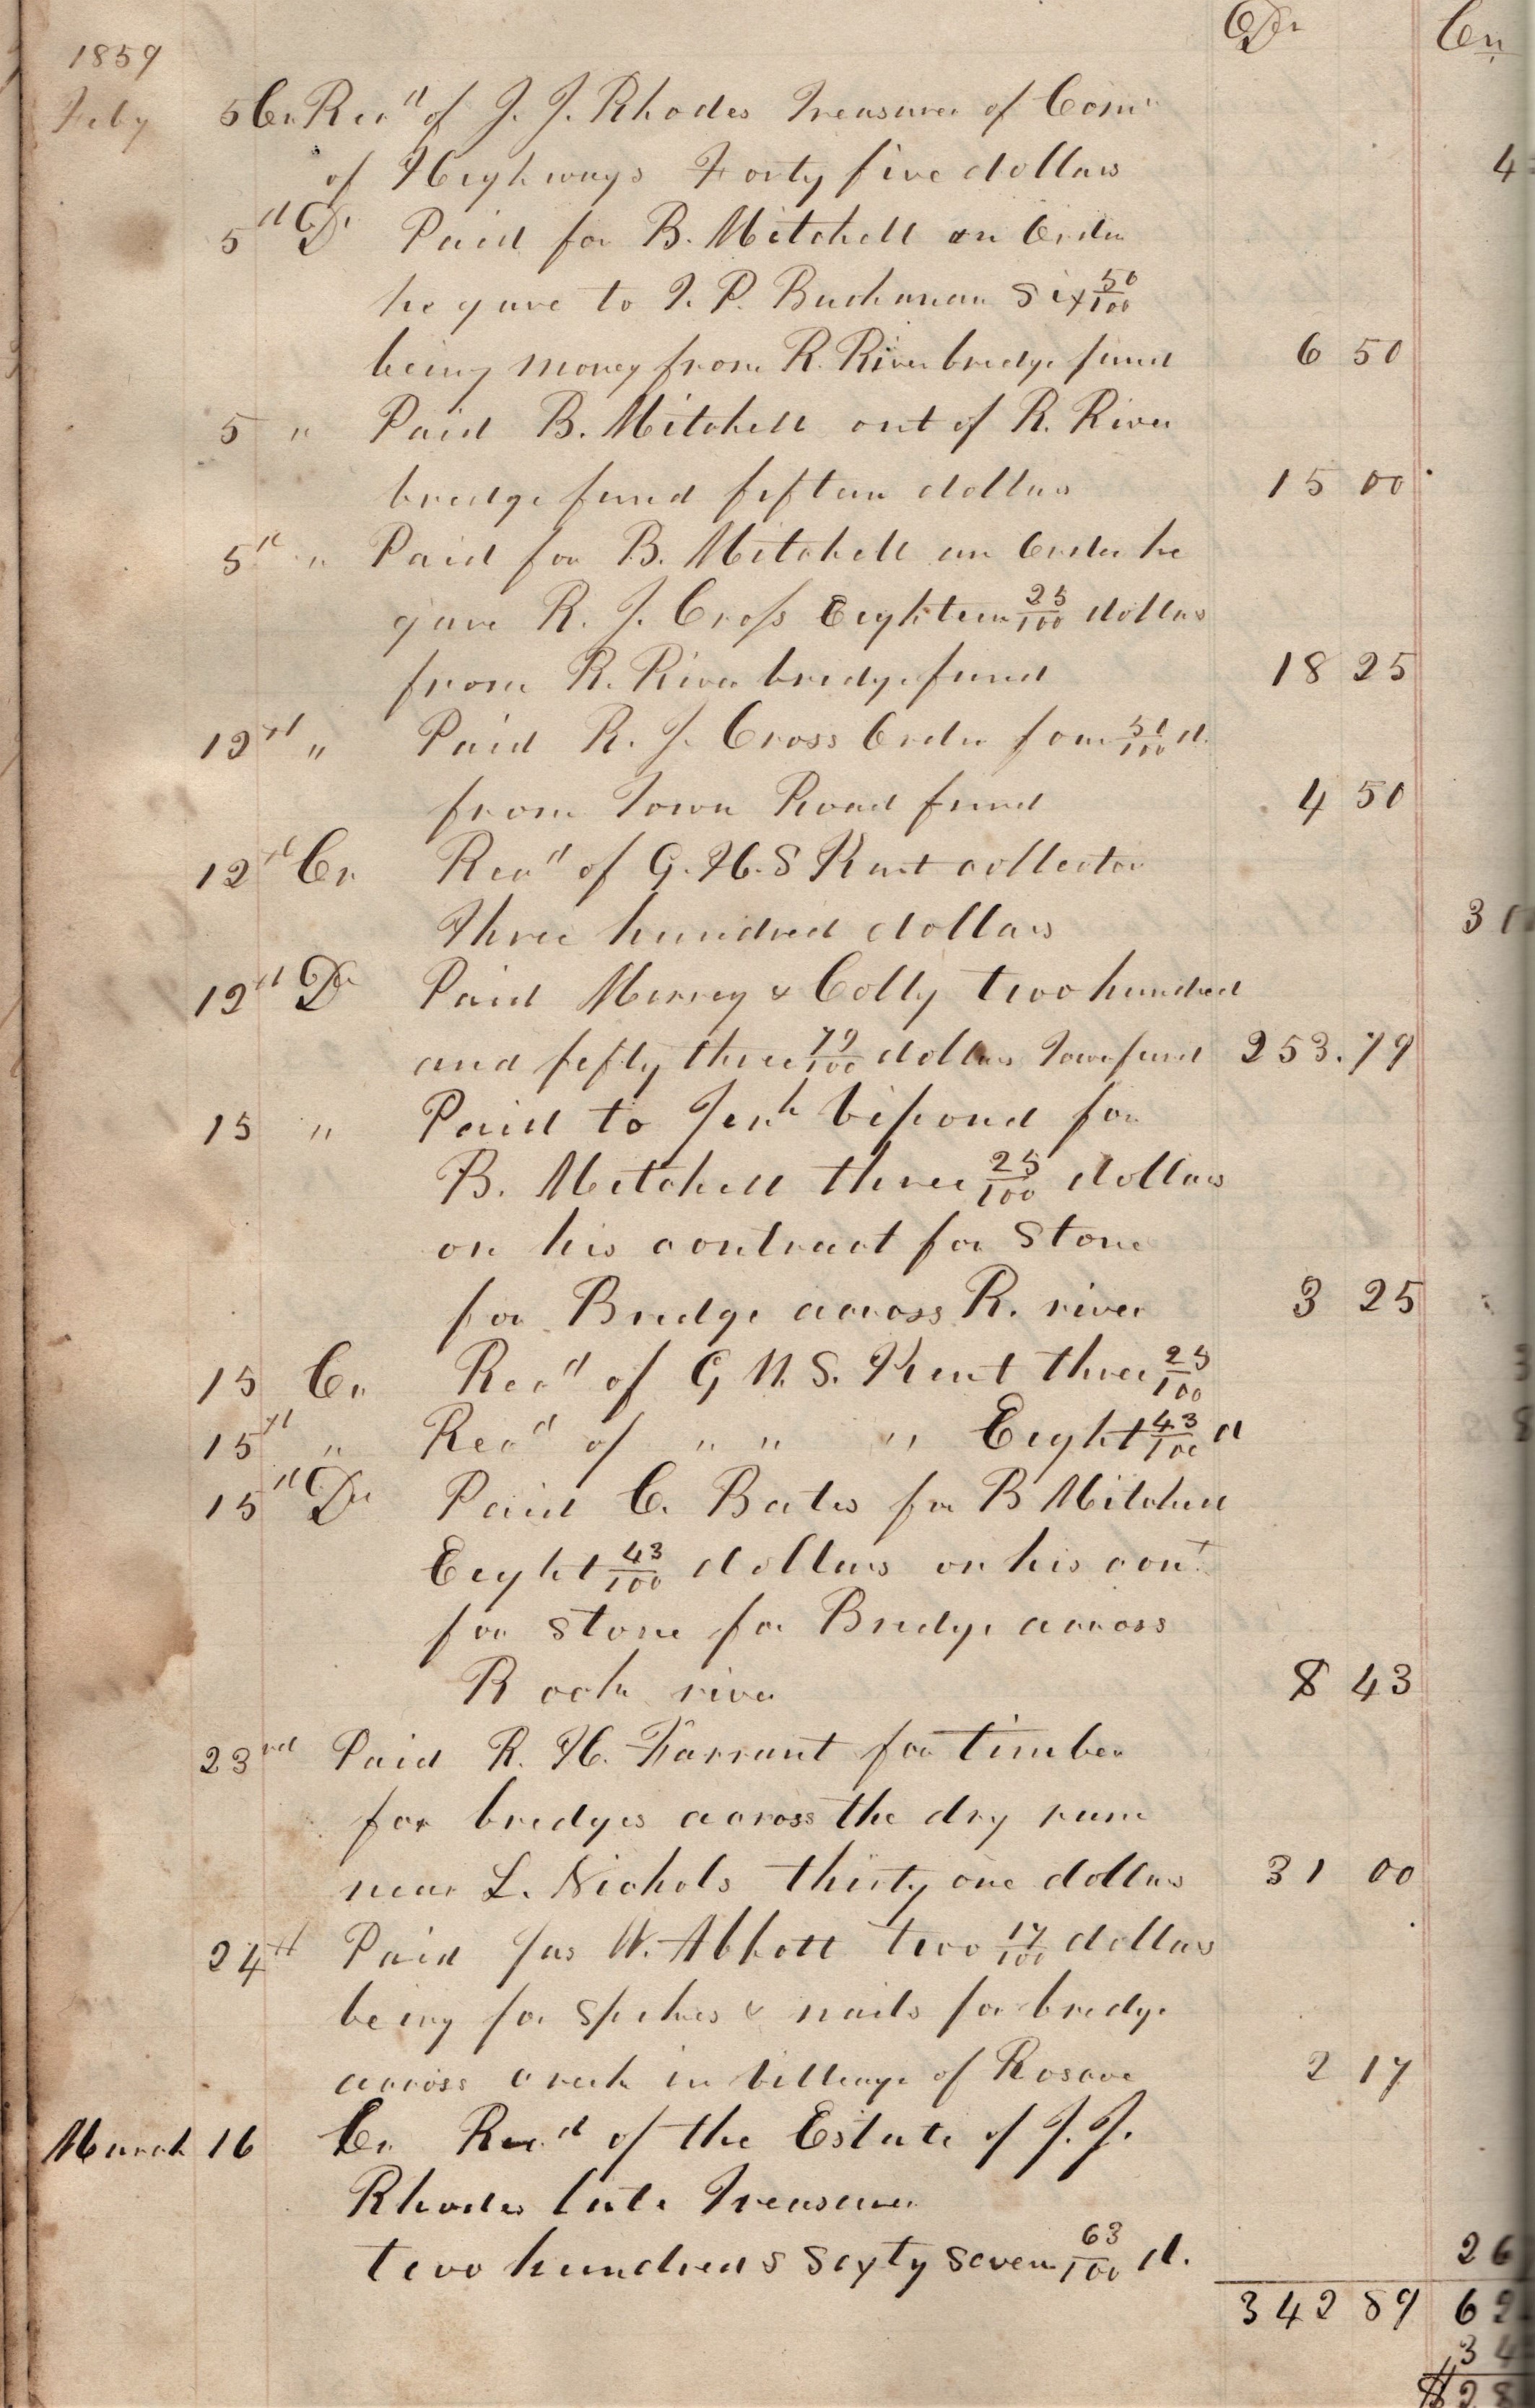 Dr Cr
1859
Feby 5 Cr Recd of J. J. Rhodes Treasurer of Comr
of Highways Forty five dollars 4
5th Dr Paid for B. Mitchell an Order
he gave to J. P. Buchanan Six 50/100
being money from R. River bridge fund 6 50
5 " Paid B. Mitchell out of R. River
bridge fund fifteen dollars 15 00
5th " Paid for B. Mitchell an Order he
gave R. J. Cross Eighteen 25/100 dollars
from R. River bridge fund 18 25
12th " Paid R. J. Cross Order four 50/100 d.
from Town Road fund 4 50
12th Cr Recd of G. H. S Kent collector
Three hundred dollars 30
12th Dr Paid Merrey & Colly two hundred
and fifty three 79/100 dollars Town fund 253.79
15 " Paid to for
B. Mitchell three 25/100 dollars
on his contract for Stone
for Bridge across R. river 3 25
15 Cr Recd of G H. S. Kent three 25/100 3
15th " Recd of " " " Eight 43/100 d 8
15th Dr Paid C. Bates for B Mitchell
Eight 43/100 dollars on his cont
for stone for Bridge across
Rock river 8 43
23rd Paid R. H. Farrant for timber
for bridges across the dry runs
near L. Nichols thirty one dollars 31 00
24th Paid Jas W. Abbott two 17/100 dollars
being for spikes & nails for bridge
across creek in Village of Roscoe 2 17
March 16 Cr Recd of the Estate of J. J.
Rhodes late Treasurer
two hundred & sixty seven 63/100 d. 26
342 89 62
34
$28